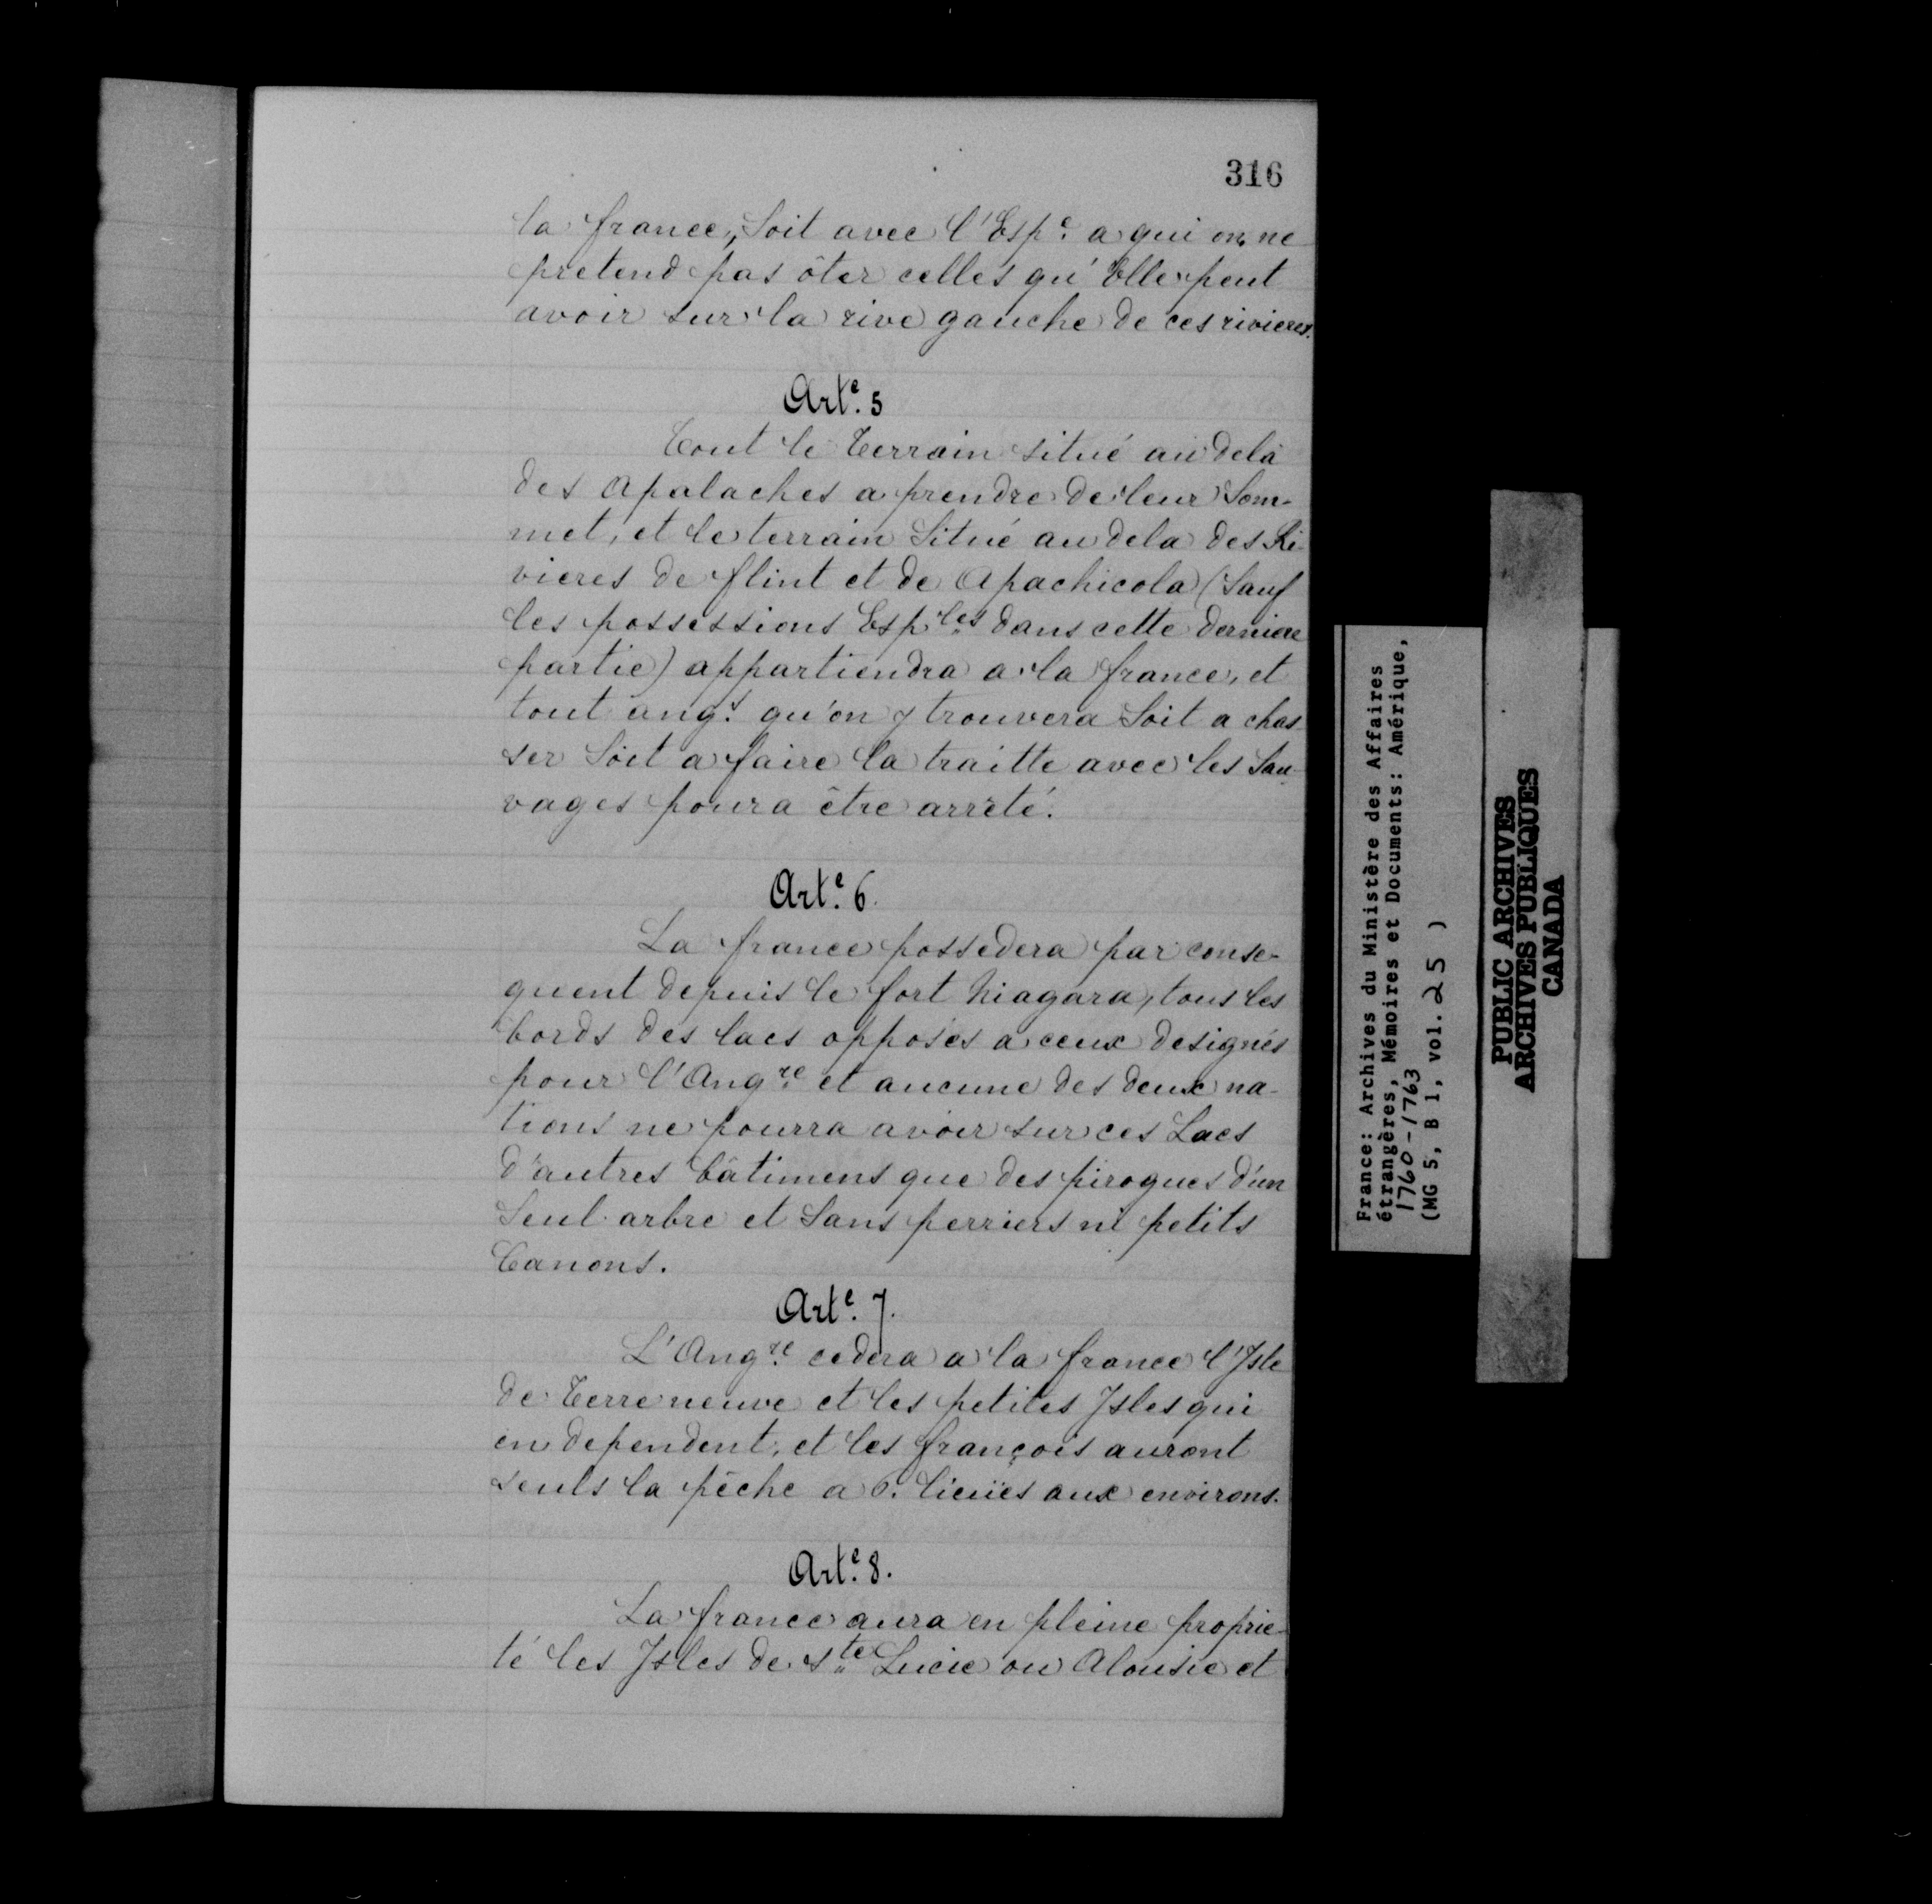 316
la france, Soit avec l'Esp.e a qui on ne
pretend pas ôter celles qu'Elle peut
avoir sur la rive gauche de ces rivieres.
Art.e 5
Tout le Terrain situé au delà
des Apalaches a prendre de leur Som-
met, et le terrain Situé au dela des Ri-
vieres de flint et de Apachicola (Sauf
les possessions Esp.les dans cette derniere
partie) appartiendra a la france, et
tout ang.s qu'on y trouvera Soit a chas
ser Soit a faire la traitte avec les Sau-
vages poura être arrêté.
Art.e 6.
La france possedera par conse-
quent depuis le fort Niagara, tous les
bords des lacs opposés a ceux designés
pour l'Ang.re et aucune des deux na-
tions ne pourra avoir sur ces Lacs
d'autres bâtimens que des pirogues d'un
Seul arbre et Sans perriers ni petits
Canons.
Art.e 7.
L'Ang.re cedera a la france l'Isle
de Terre neuve et les petites Isles qui
en dependent, et les françois auront
seuls la pêche a 6. lieües aux environs.
Art.e 8.
La france aura en pleine proprie-
té les Isles de S.te Lucie ou Alousie et
France: Archives du Ministère des Affaires
étrangères, Mémoires et Documents: Amérique,
1760-1763
(MG 5, B 1, vol. 25 )
PUBLIC ARCHIVES
ARCHIVES PUBLIQUES
CANADA